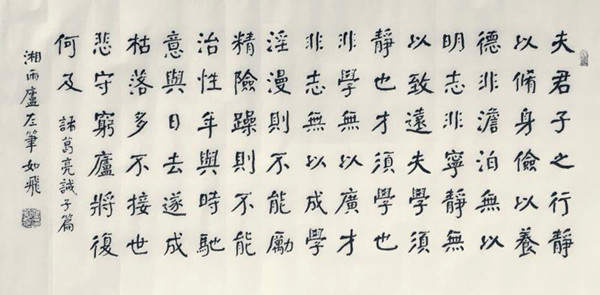 夫君子之行靜
以脩身儉以養
德非澹泊無以
明志非寧靜無
以致遠夫學須
靜也才須學也
非學無以廣才
非志無以成學
淫漫則不能勵
精險躁則不能
治性年與時馳
意與日去遂成
枯落多不接世
悲守窮廬將復
何及 諸葛亮誡子篇
湘雨廬左筆如飛